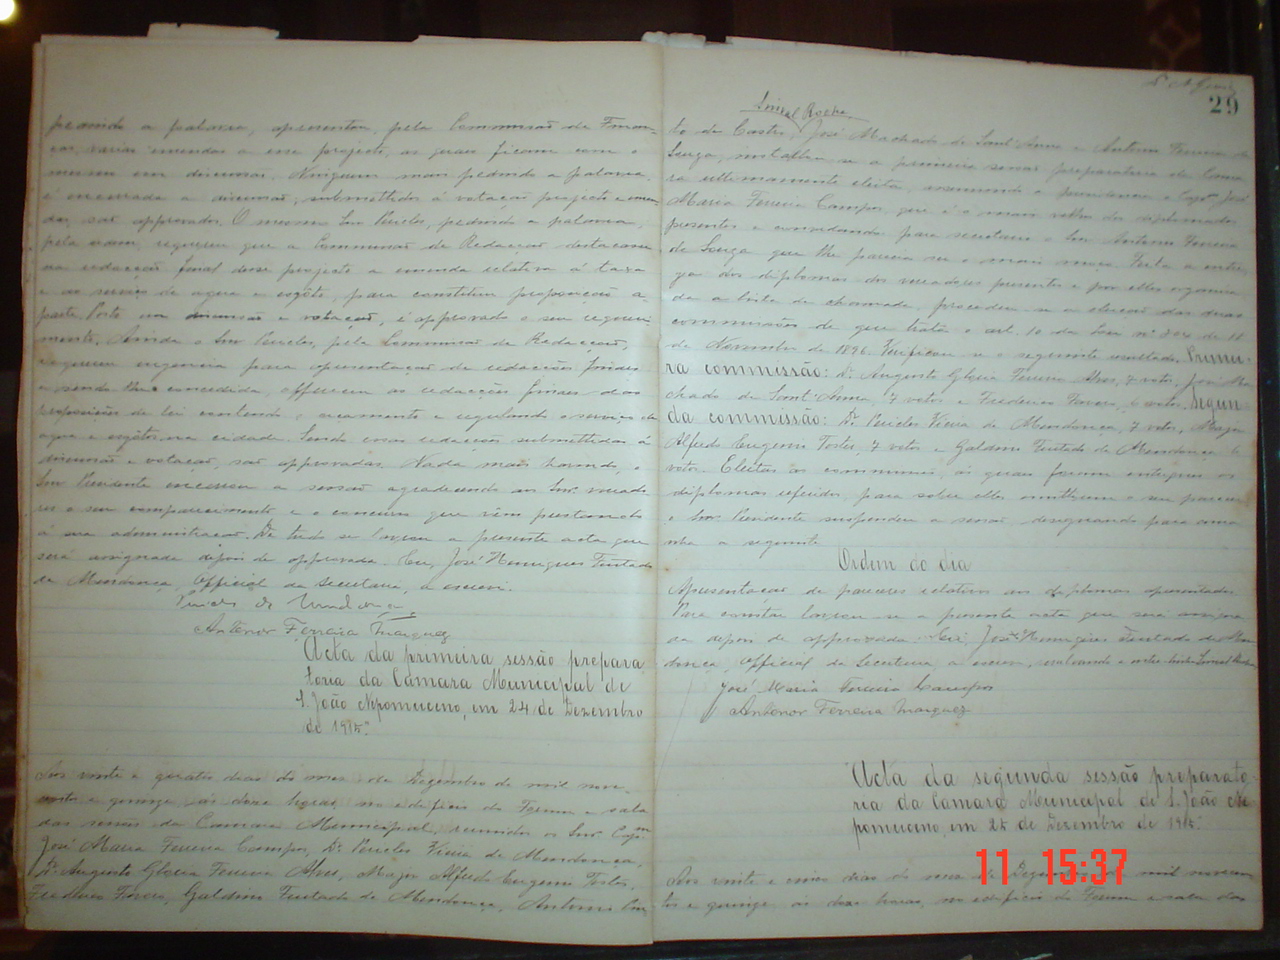 pedindo a palavra, apresentou, pela Commissão de Finan-
ças, varias emendas a esse projecto, as quaes ficam com o
mesmo em discussão. Ninguem mais pedindo a palavra,
é encerrada a discussão, submettidos á votação projecto e emen-
das, são approvados. O mesmo Snr. Pericles, pedindo a palavra,
pela ordem, requereu que a Commissão de Redacção destacasse
da redacção final desse projecto a emenda relativa á taxa
e ao serviço de agua e esgôtos, para constituir proposição a-
parte. Posto em discussão e votação, é approvado o seu requeri-
mento. Ainda o Snr. Pericles, pela Commissão de Redacção,
requereu urgencia para apresentação de redacções finaes
e sendo-lhe concedida, offereceu as redacções finaes das
proposições de lei contendo o orçamento e regulando o serviço de
agua e esgôtos na cidade. Sendo essas redacções submettidas á
discussão e votação, são approvadas. Nada mais havendo, o
Snr. Presidente encerrou a sessão agradecendo aos Snrs. vereado-
res o seu comparecimento e o concurso que vêm prestando
á sua administração. De tudo se lavrou a presente acta que
será assignada depois de approvada. Eu, José Henriques Furtado
de Mendonça, Official da Secretaria, a escrevi.
Pericles de Mendonça
Antenor Ferreira Marques
Acta da primeira sessão prepara
toria da Camara Municipal de
S. João Nepomuceno, em 24 de Dezembro
de 1915.
Aos vinte e quatro dias do mez de Dezembro de mil nove-
centos e quinze, ás doze horas, no edificio do Forum e sala
das sessões da Camara Municipal, reunidos os Snrs. Capm.
José Maria Ferreira Campos, Dr. Pericles Vieira de Mendonça,
Dr. Augusto Gloria Ferreira Alves, Major Alfredo Eugenio Fortes,
Frederico Favero, Galdino Furtado de Mendonça, Antonio
29
Leonel Rocha
to de Castro, José Machado de Sant'Anna e Antonio Ferreira de
Souza, installou-se a primeira sessão preparatoria da Cama-
ra ultimamente eleita, assumindo a presidencia o Capm. José
Maria Ferreira Campos, que é o mais velho dos diplomados
presentes e convidando para secretario o Snr. Antonio Ferreira
de Souza que lhe pareceu ser o mais moço. Feita a entre-
ga dos diplomas dos vereadores presentes e por elles organiza-
da a lista de chamada, procedeu-se a eleição das duas
commissões de que trata o art. 10 da Lei nº de 11
de Novembro de 1896. Verificou-se o seguinte resultado. Primei-
ra commissão: Dr. Augusto Gloria Ferreira Alves, 7 votos, José Ma-
chado de Sant'Anna, 7 votos e Frederico Favero, 6 votos. Segun
da commissão: Dr. Pericles Vieira de Mendonça, 7 votos, Major
Alfredo Eugenio Fortes, 7 votos e Galdino Furtado de Mendonça 6
votos. Eleitas as commissões, ás quaes foram entregues os
diplomas referidos, para sobre elles emittirem o seu parecer,
o Snr. Presidente suspendeu a sessão, designando para ama
nhã a seguinte
Ordem do dia
Apresentação de pareceres relativos aos diplomas apresentados.
Para constar lavrou-se a presente acta que será assigna-
da depois de approvada. Eu, José Henriques Furtado de Men
donça, Official da Secretaria a escrevi, resalvando a entre-linha Leonel Rocha
José Maria Ferreira Campos
Antenor Ferreira Marques
Acta da segunda sessão preparato-
ria da Camara Municipal de S. João Ne
pomuceno, em 25 de Dezembro de 1915.
Aos vinte e cinco dias do mez de Dezembro de mil novecen
tos e quinze, ás doze horas, no edificio do Forum e sala das
11 15:37